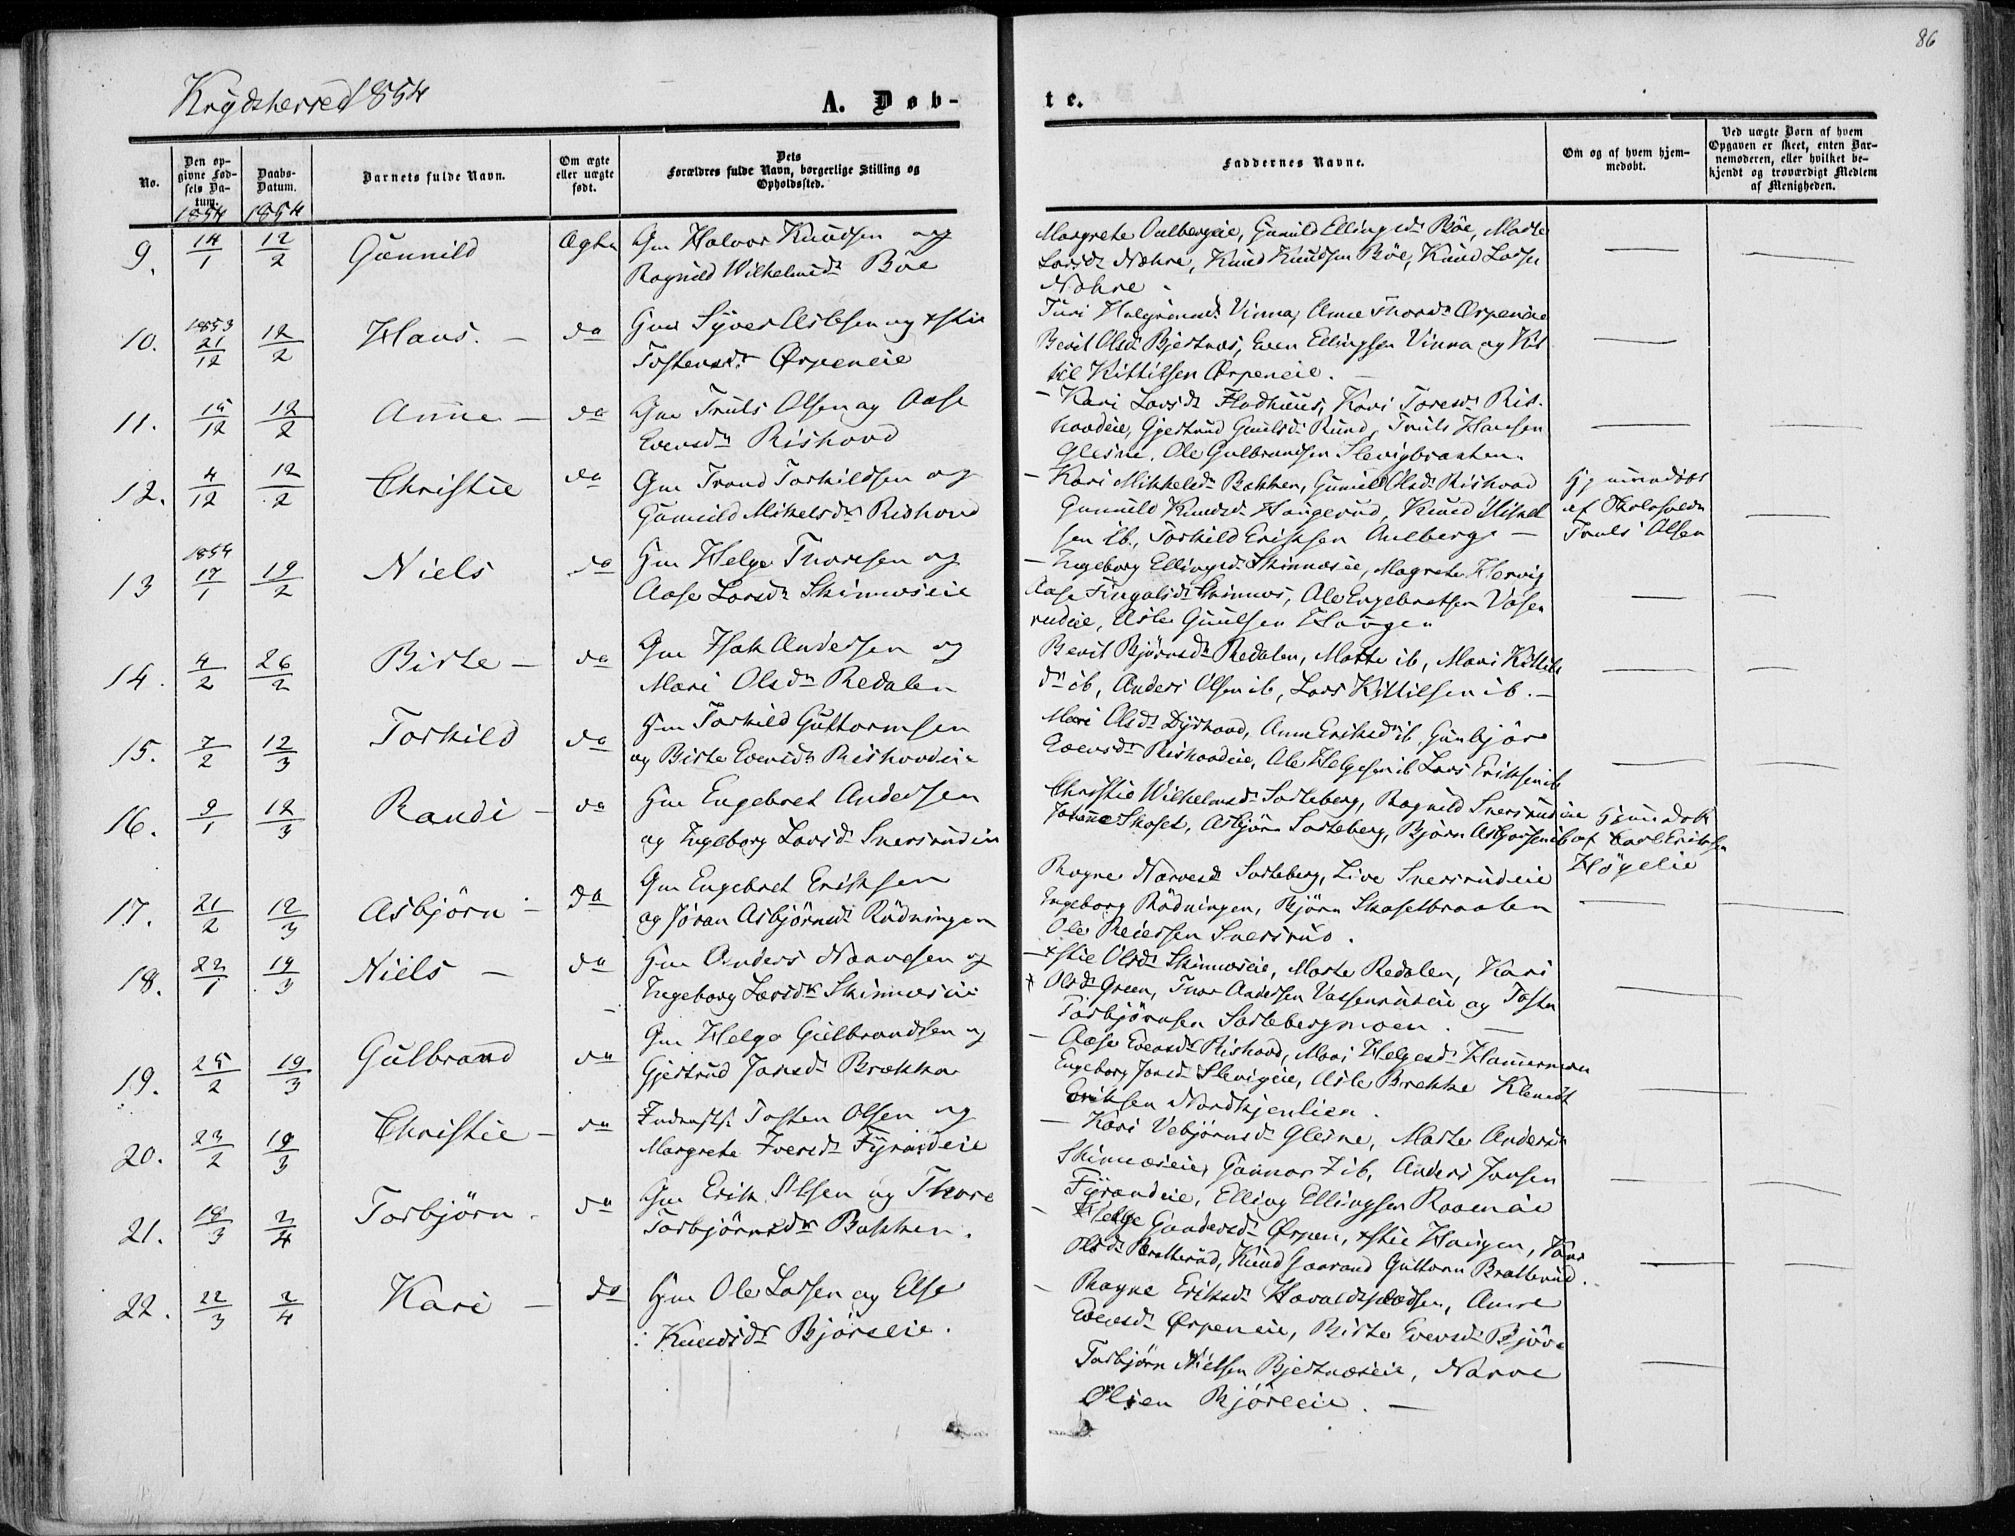 86
Krydsherred 1854
A. Døb-
te.
No.
Den op-
givne Fød-
sels Da-
tum.
Daabs-
Datum.
Barnets fulde Navn.
Om ægte
eller uægte
født.
Dets
Forældres fulde Navn, borgerlige Stilling og
Opholdssted.
Faddernes Navne.
Om og af hvem hjem-
medøbt.
Ved uægte Børn af hvem
Opgaven er skeet, enten Bar-
nemoderen, eller hvilket be-
kjendt og troværdigt Medlem
af Menigheden.
1854 1854
9. 14/1 12/2 Gunnild Ægte Gm Halvor Knudsen og
Ragnild Wilhelmsdr Bøe
Margrete Aulbergeie, Gunild Ellingsdr Bøe, Marte
Larsdr Næhre, Knud Knudsen Bøe, Knud Larsen
Næhre.
10. 1853 21/12 12/2 Hans. - do Gm Syver Aslesen og Xstie
Tostensdr Ørpeneie
Turi Halgrimsdr Vinna, Anne Thorsdr Ørpeneie
Berit Olsdr Bjertnæs, Even Ellingsen Vinna og Kit
til Kittilsen Ørpeneie. -
11. 15/12 12/2 Anne - do Gm Truls Olsen og Aase
Evensdr Rishovd
- Kari Larsdr Flodhuus, Kari Toresdr Ris-
hovdeie, Gjertrud Gulsdr Rund, Truls Hansen
Glesne, Ole Gulbrandsen Slevigbraaten.
12. 4/12 12/2 Christie do Gm Trond Torkildsen og
Gunnild Mikelsdr Rishovd
- Kari Mikkelsdr Bakken, Gunild Olsdr Rishovd
Gunnild Knudsdr Haugerud, Knud Mikkel
sen ib., Torkild Eriksen Aulberge -
Hjemmedøbt
af Skoleholder
Truls Olsen
13 1854 17/1 12/2 Niels do Gm Helge Thoresen og
Aase Larsdr Skinnæseie
- Ingeborg Ellingsdr Skinnæseie, Magrete Hervig
Aase Fingalsdr Skinnæs, Ole Engebretsen Vasen
rudeie, Asle Guulsen Haugen
14. 4/2 26/2 Birte - do Gm Isak Andersen og
Mari Olsdr Redalen
Berit Bjørnsdr Redalen, Marte ib, Mari Kittils
dr ib, Anders Olsen ib, Lars Kittilsen ib. -
15. 7/2 12/3 Torkild do Gm Torkild Guttormsen
og Birte Evensdr Rishovdeie
Mari Olsdr Dyrhovd, Anne Eriksdr ib Gunbjør
Evensdr Rishovdeie, Ole Helgesen ib Lars Eriksen ib
16. 9/1 12/3 Randi - do Gm Engebret Andersen
og Ingeborg Larsdr Snersrudeie
Christie Wilhelmsdr Sorteberg, Ragnild Snersrudeie
Johanne Skaset, Asbjørn Sorteberg, Bjørn Asbjørsen ib
Hjemmedøbt
af Carl Eriksen
Høgelie
17. 21/2 12/3 Asbjørn - do Gm Engebret Eriksen
og Jøran Asbjørnsdr Rødningen
Ragne Narvesdr Sorteberg, Live Snersrudeie
Ingeborg Rødningen, Bjørn Skasetbraaten
Ole Reiersen Snersrud.
18. 22/1 19/3 Niels - do Gm Anders Narvesen og
Ingeborg Larsdr Skinnæseie
- Xstie Olsdr Skinnæseie, Marte Redalen, Kari
Olsdr Green, Thor Andersen Vassenrudeie og Tosten
Torbjørnsen Sortebergmoen. -
19. 25/2 19/3 Gulbrand do Gm Helge Gulbrandsen og
Gjertrud Jonsdr Brækka
- Aase Evensdr Rishovd, Mari Helgesdr Hammeren
Engeborg Jonsdr Slevigeie, Asle Brekke Klemet
Eriksen Nordhjenlien.
20. 23/2 19/3 Christie - do Inderst: Tosten Olsen og
Margrete Iversdr Fyrandeie
- Kari Vebjørnsdr Glesne, Marte Andersdr
Skinnæseie, Gunnar ib, Anders Jonsen
Fyrandeie, Elling Ellingsen Raaeneie
21. 18/3 2/4 Torbjørn. do Gm Erik Olsen og Thore
Torbjørnsdr Bakken.
- Helge Gundersdr Ørpen, Xstie Haugen, Kari
Olsdr Bratterud, Knud Gaarand Guttorm Bratterud.
22. 22/3 2/4 Kari - do Gm Ole Larsen og Else
Knudsdr Bjøreeie.
- Ragne Eriksdr Havaldspladsen, Anne
Evensdr Ørpeneie, Birte Evensdr Bjøre
Torbjørn Nielsen Bjertnæseie, Narve
Olsen Bjøreeie. -